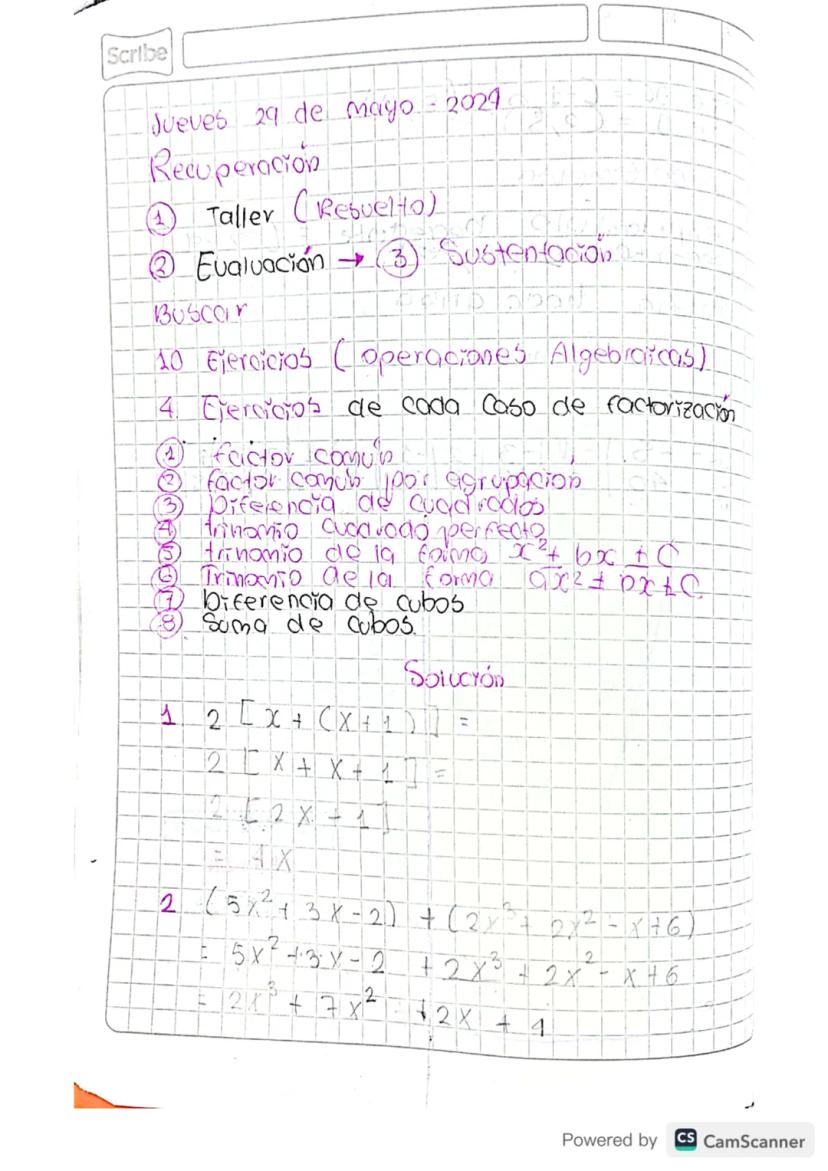 Scribe
Jueves 29 de mayo - 2024
Recuperación
1 Taller (Resuelto)
2 Evaluación → 3 Sustentación
Buscar
10 Ejercicios (operaciones Algebraicas)
4. Ejercicios de cada caso de factorización
1 factor común
2 factor común por agrupación
3 Diferencia de cuadrados
4 trinomio cuadrado perfecto
5 trinomio de la forma x² + bx ± C
6 Trinomio de la forma ax² ± bx ± C
7 Diferencia de cubos
8 Suma de cubos.
Solución
1 2 [x + (x + 1)] =
2 [x + x + 1] =
2 [2x + 1]
= 4x
2 (5x² + 3x - 2) + (2x³ + 2x² - x + 6)
= 5x² + 3x - 2 + 2x³ + 2x² - x + 6
= 2x³ + 7x² + 2x + 4
Powered by CS CamScanner